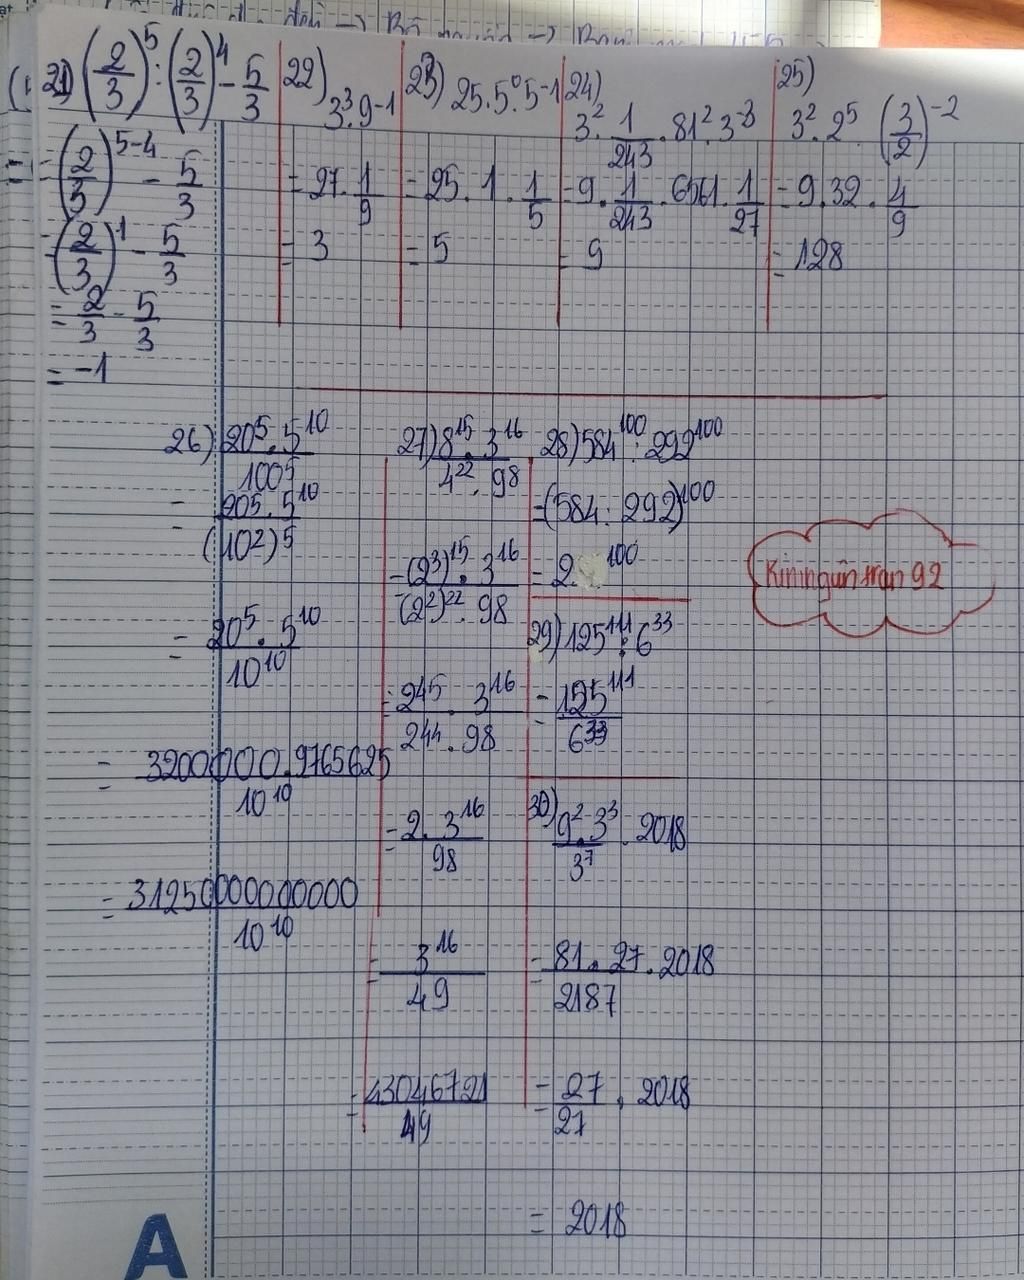 21) (2/3)⁵ : (2/3)⁴ - 5/3
= (2/3)⁵⁻⁴ - 5/3
= (2/3)¹ - 5/3
= 2/3 - 5/3
= -1
22) 3³.9⁻¹
= 27.1/9
= 3
23) 25.5⁰.5⁻¹
= 25.1.1/5
= 5
24) 3².1/243.81².3⁻³
= 9.1/243.6561.1/27
= 9
25) 3².2⁵.(3/2)⁻²
= 9.32.4/9
= 128
26) 20⁵.5¹⁰/100⁵
= 20⁵.5¹⁰/(10²)⁵
= 20⁵.5¹⁰/10¹⁰
= 3200000.9765625/10¹⁰
= 31250000000000/10¹⁰
27) 8¹⁵.3¹⁶/4²².98
= (2³)¹⁵.3¹⁶/(2²)²².98
= 2⁴⁵.3¹⁶/2⁴⁴.98
= 2.3¹⁶/98
= 3¹⁶/49
= 43046721/49
28) 584¹⁰⁰ : 292¹⁰⁰
= (584 : 292)¹⁰⁰
= 2¹⁰⁰
29) 125¹¹¹ : 6³³
= 125¹¹¹/6³³
30) 9².3³/3⁷.2018
= 81.27.2018/2187
= 27/27.2018
= 2018
A